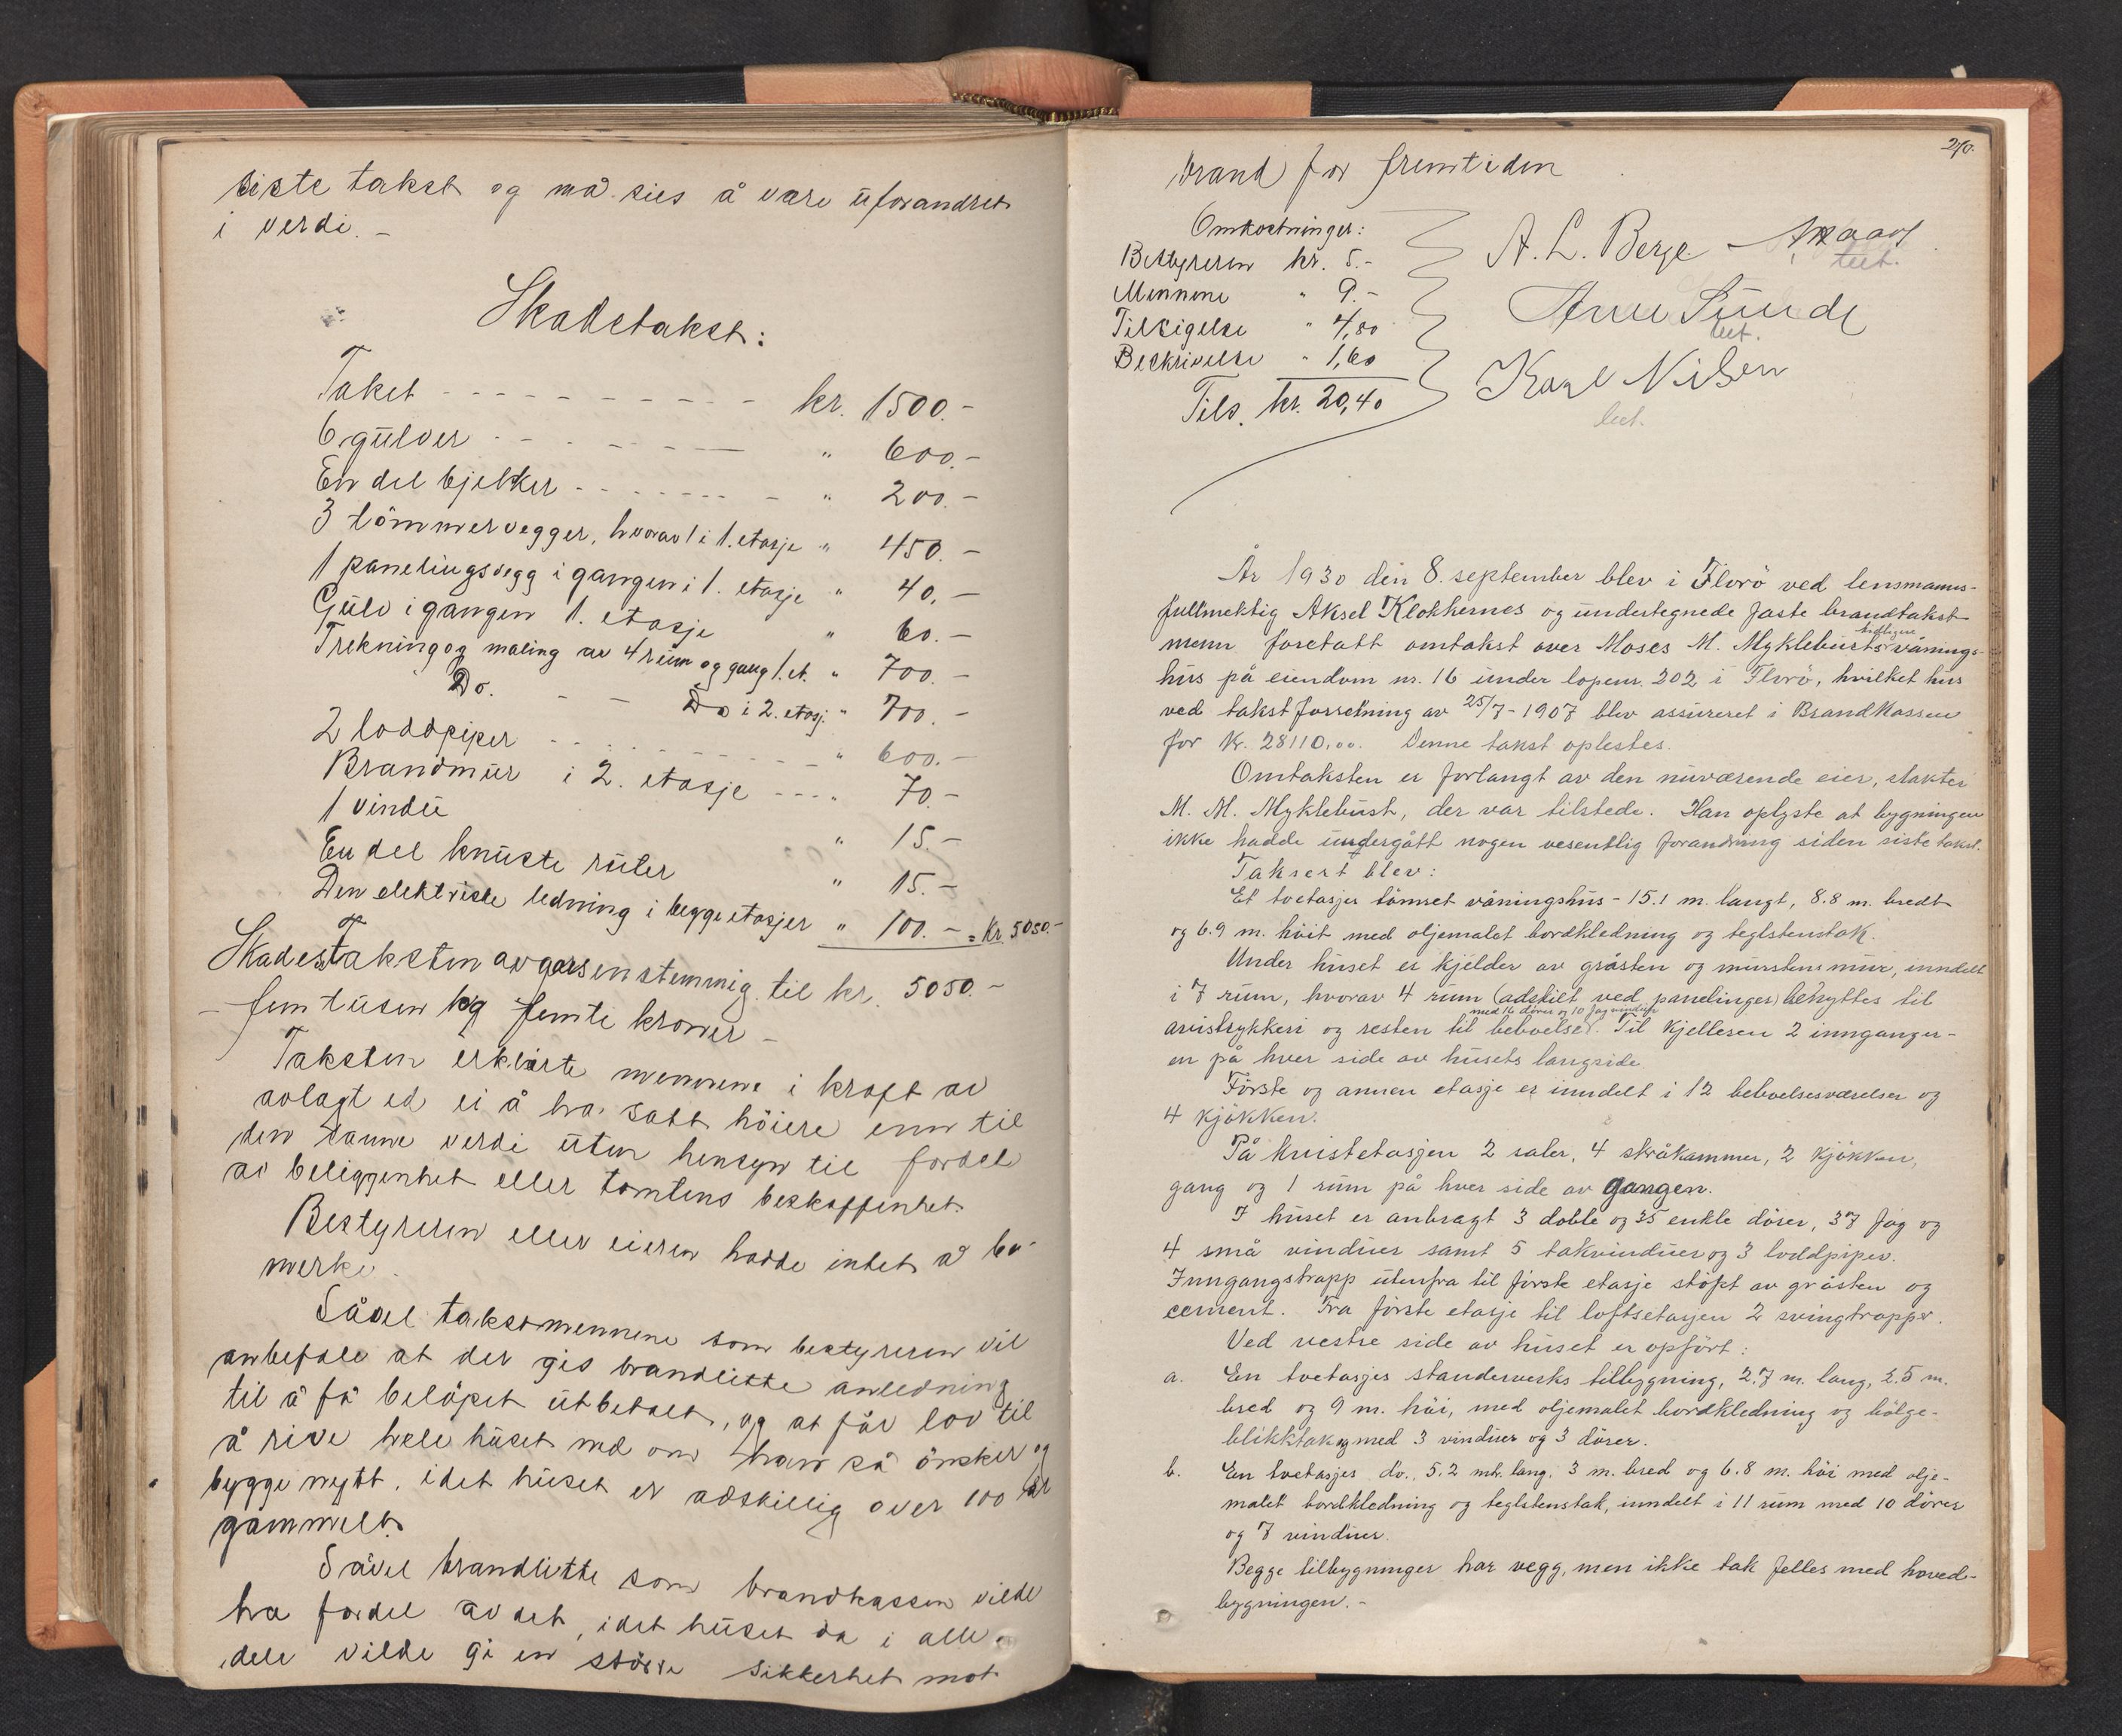 siste takst og må sies å være uforandret
i verdi. -
Skadetakst:
Taket kr. 1500.-
6 gulver " 600.-
En del bjelker " 200.-
3 tömmervegger, hvorav 1 i 1. etasje " 450.-
1 panelingsvegg i gangen i 1. etasje " 40.-
Gulv i gangen 1. etasje " 60.-
Trekning og maling av 4 rum og gang 1. et. " 700.-
Do. - - Do i 2. etasj. " 700.-
2 loddpiper " 600.-
Brandmur i 2. etasje " 70.-
1 vindu " 15.-
En del knuste ruter " 15.-
Den elektriske ledning i begge etasjer " 100.- = Kr. 5050.-
Skadestaksten avgaes enstemmig til kr. 5050.-
- fem tusen og femti kroner -
Taksten erklærte mennene i kraft av
avlagt ed ei å ha satt höiere enn til
den sanne verdi uten hensyn til fordel
av beliggenhet eller tomtens beskaffenhet.
Bestyreren eller eieren hadde intet å be-
merke.
Såvel takstmennene som bestyreren vil
anbefale at der gis brandlitte anledning
til å få belöpet utbetalt, og at får lov til
å rive hele huset ned om han så önsker og
bygge nytt, idet huset er adskillig over 100 år
gammelt.
Såvel brandlitte som brandkassen vilde
ha fordel av det, idet huset da i alle
dele vilde gi en större sikkerhet mot
270.
brand for fremtiden
Omkostninger:
Bestyreren kr. 5.-
Mennene " 9.-
Tilsigelse " 4,80
Beskrivelse " 1,60
Tils. kr. 20,40
A. L. Berge
Sunde
Karl Nilsen
År 1930 den 8. september blev i Florö ved lensmanns-
fullmektig Aksel Klokkernes og undertegnede faste brandtakst-
menn foretatt omtakst over Moses M. Myklebusts tidligere vånings-
hus på eiendom nr. 16 under löpenr. 202 i Florö, hvilket hus
ved takstforretning av 25/7-1907 blev assureret i Brandkassen
for kr. 28110,00. Denne takst oplestes.
Omtaksten er forlangt av den nuværende eier, slakter
M. M. Myklebust, der var tilstede. Han oplyste at bygningen
ikke hadde undergått nogen vesentlig forandring siden siste takst.
Taksert blev:
Et toetasjes tömret våningshus - 15.1 m. langt, 8.8 m. bredt
og 6.9 m. höit med oljemalet bordkledning og teglstenstak.
Under huset er kjelder av gråsten og murstens mur, inndelt
i 7 rum, hvorav 4 rum (adskilt ved panelinger) benyttes til
avistrykkeri og resten til bebvelse med 16 dörer og 10 fag vinduer. Til Kjelleren 2 innganger -
en på hver side av husets langside.
Förste og annen etasje er inndelt i 12 bebvelsesværelser og
4 kjökken.
På kvistetasjen 2 saler, 4 skråkammer, 2 kjökken,
gang og 1 rum på hver side av gangen.
I huset er anbragt 3 doble og 35 enkle dörer, 37 fag og
4 små vinduer samt 5 takvinduer og 3 loddpiper.
Inngangstrapp utenfra til förste etasje stöpt av gråsten og
cement. Fra förste etasje til loftsetasjen 2 svingtrapper.
Ved vestre side av huset er opfört:
a. En toetasjes standerverks tilbygning, 2.7 m. lang, 2.5 m.
bred og 9 m. höi, med oljemalet bordkledning og bölge-
blikktak og med 3 vinduer og 3 dörer.
b. En toetasjes do., 5.2 mtr. lang, 3 m. bred og 6.8 m. höi med olje-
malet bordkledning og teglstenstak, inndelt i 11 rum med 10 dörer
og 7 vinduer.
Begge tilbygninger har vegg, men ikke tak felles med hoved-
bygningen. -